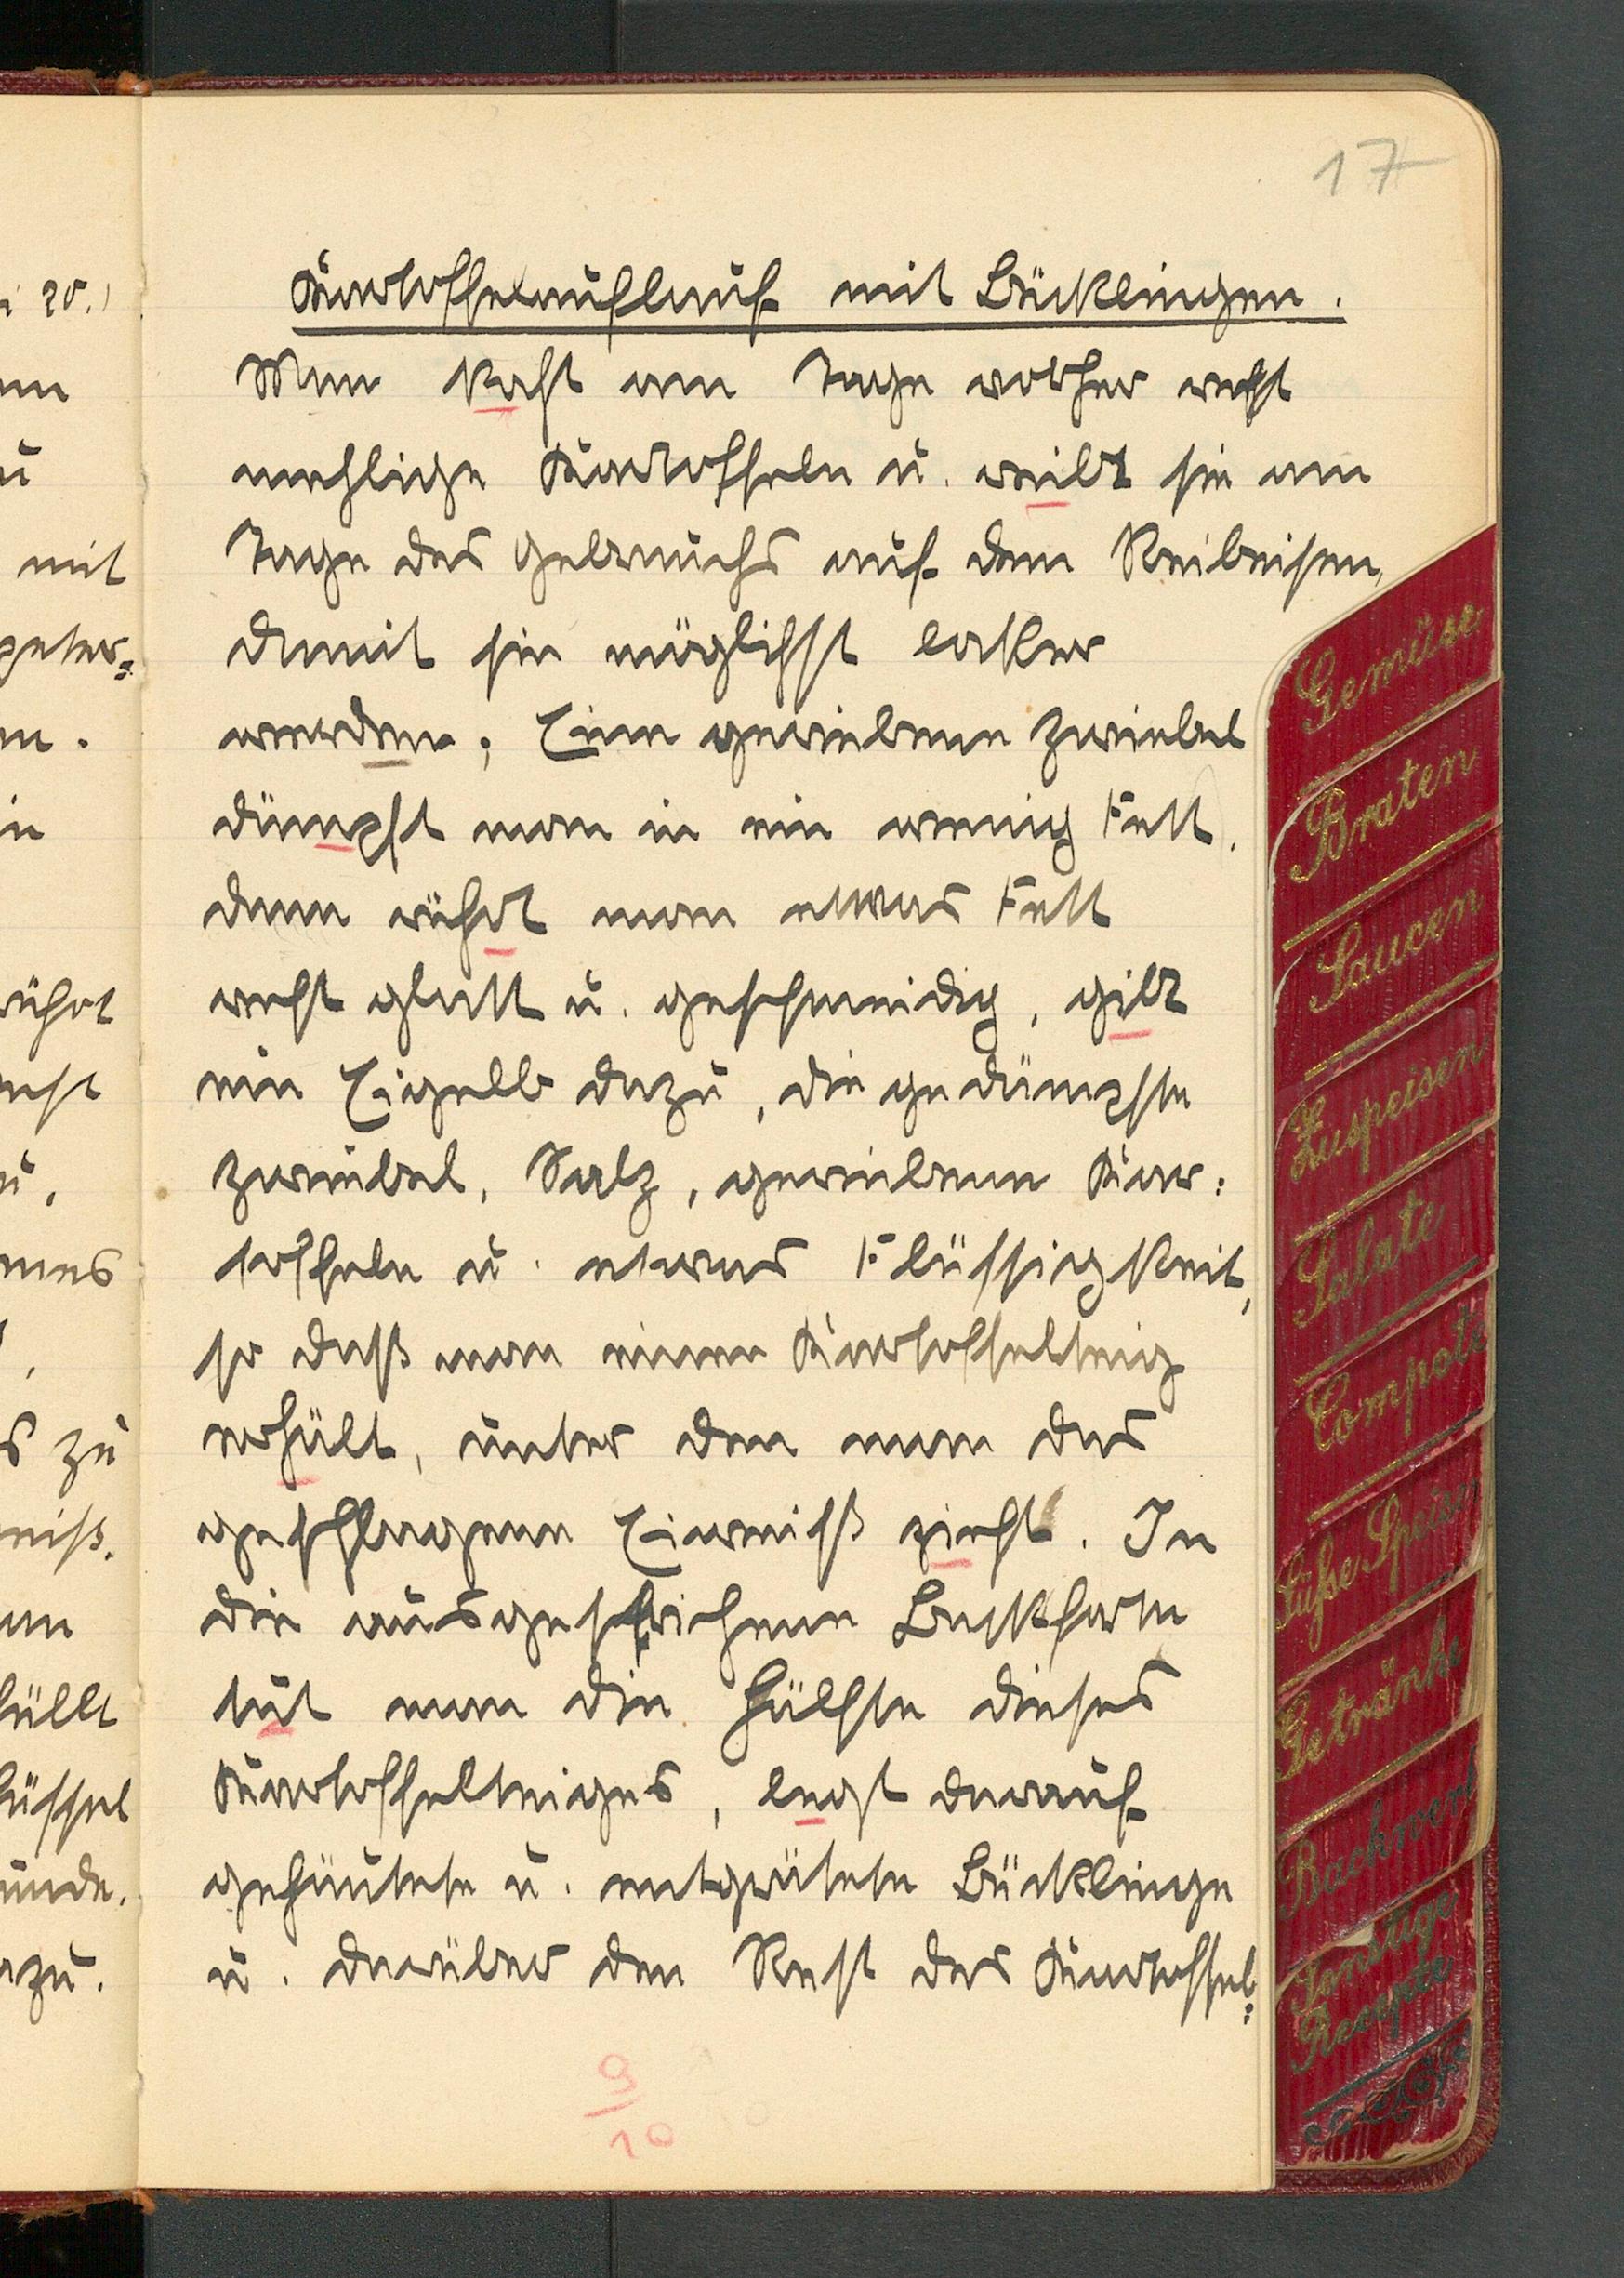 17
i 20.)
Kartoffelauflauf mit Bücklingen.
Man kocht am Tage vorher recht
mehlige Kartoffeln u. reibt sie am
Tage des Gebrauchs auf dem Reibeisen,
mit
damit sie möglichst locker
werden; Eine geriebene Zwiebel
dämpft man in ein wenig Fett.
dann rührt man etwas Fett
recht glatt u. geschmeidig, gibt
rührt
ein Eigelb dazu, die gedämpfte
Zwiebel, Salz, geriebene Kar:
toffeln u. etwas Flüssigkeit,
so daß man einen Kartoffelteig
erhält, unter den man das
zu
geschlagene Eiweiß zieht. In
die ausgestrichene Backform
tut man die Hälfte dieses
Kartoffelteiges, legt darauf
gehäutete u. entgrätete Bücklinge
u. darüber den Rest des Kartoffel:
9
10
Gemüse
Braten
Saucen
Zuspeisen
Salate
Compote
Süße Speisen
Getränke
Backwerk
Sonstige
Recepte